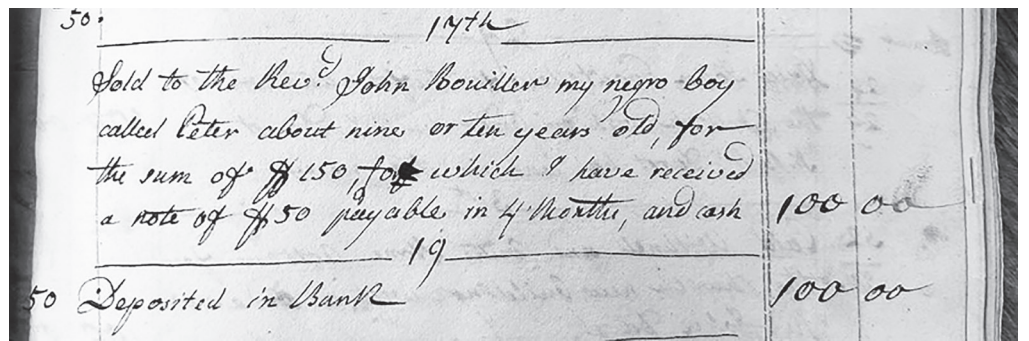 50. 17th
Sold to the Revd. John Bouiller my negro boy
called Peter about nine or ten years old, for
the sum of $150, for which I have received
a note of $50 payable in 4 Months, and cash 100 00
19
50 Deposited in Bank 100 00